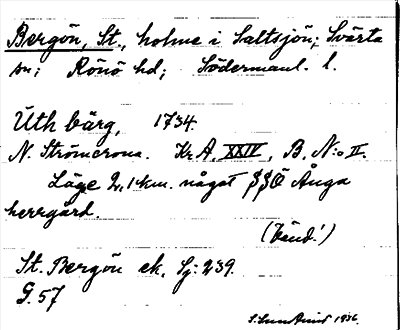 Bergön, St., holme i Saltsjön; Svärta
sn; Rönö hd; Södermanl. l.
Uth bärg, 1734.
N. Strömcrona. Kr.A. XXIV, B, N:o II.
Läge 2,1 km. något SSÖ Ånga
herrgård.
(Vänd!)
St. Bergön ek. Sj: 239.
G. 57
1936.